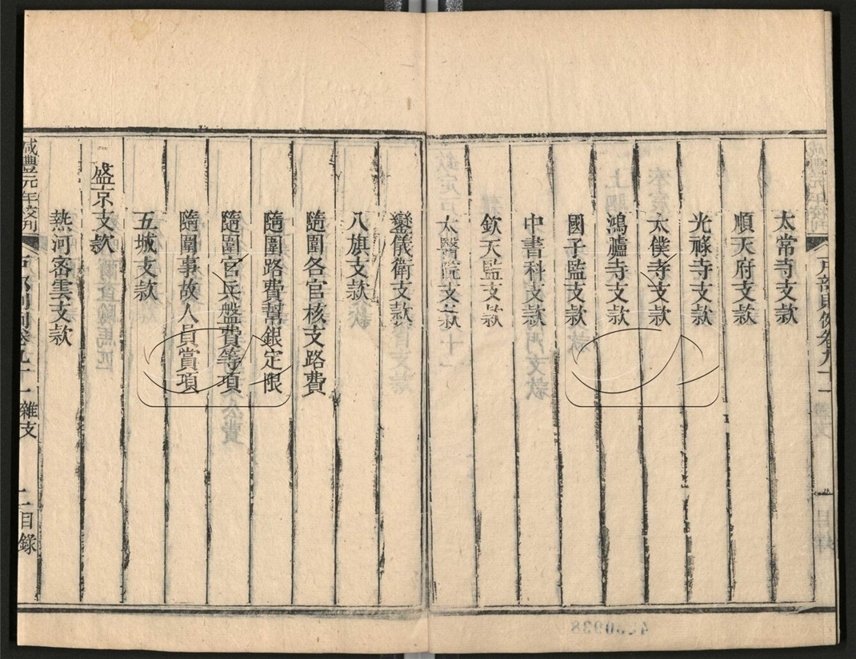 太常寺支款
順天府支款
光祿寺支款
太僕寺支款
鴻臚寺支款
國子監支款
中書科支款
欽天監支款
太醫院支款
鑾儀衛支款
八旗支款
隨圍各官核支路費
隨圍路費幫銀定限
隨圍官兵盤費等項
隨圍事故人員賞項
五城支款
盛京支款
熱河密雲支款
咸豐元年校刊
戶部則例卷九十一 雜支
二目錄